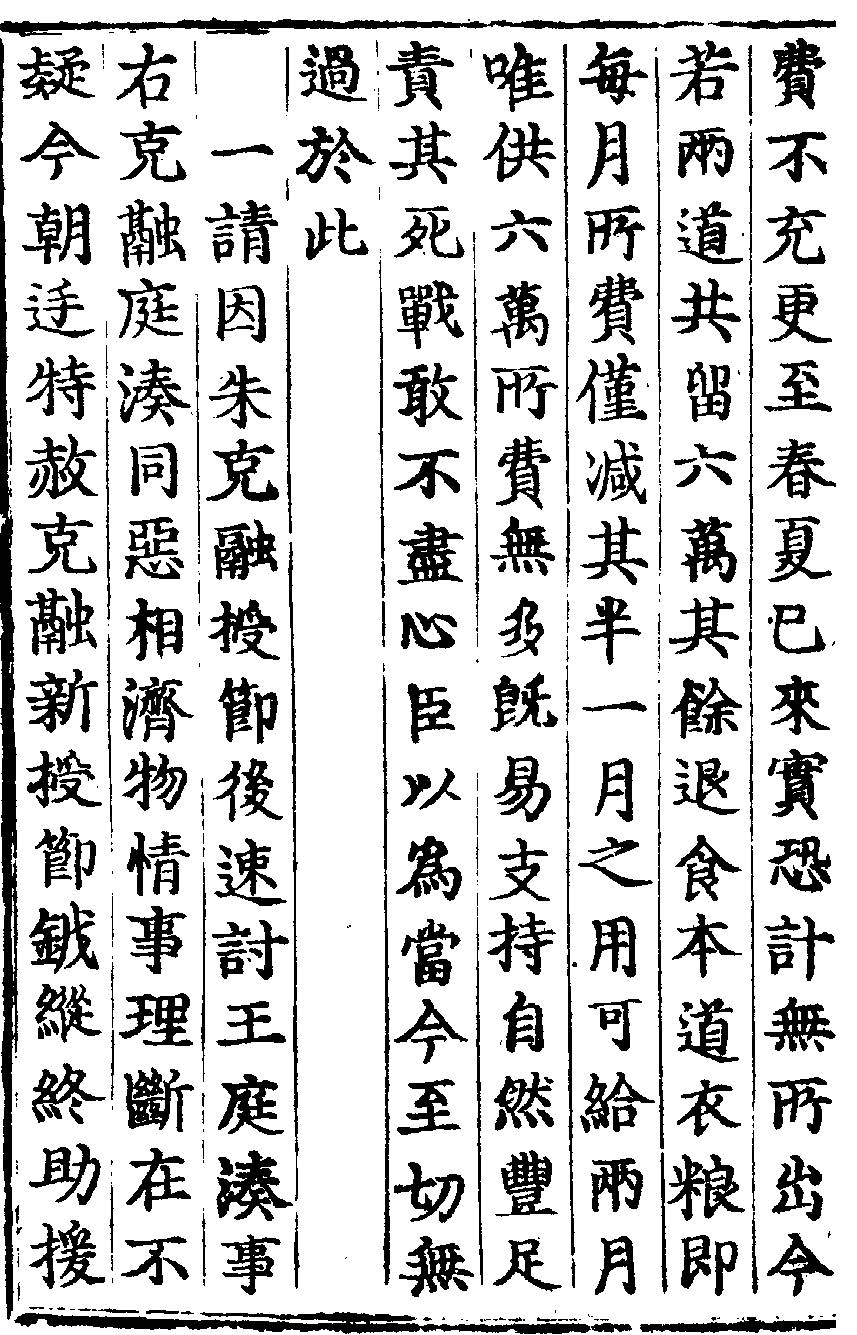 費不充更至春夏已來實恐計無所出今
若兩道共留六萬其餘退食本道衣粮即
每月所費僅减其半一月之用可給兩月
唯供六萬所費無多旣易支持自然豐足
責其死戰敢不盡心臣以為當今至切無
過於此
一請因朱克融授節後速討王庭湊事
右克融庭湊同惡相濟物情事理斷在不
疑今朝廷特赦克融新授節鉞縱終助援